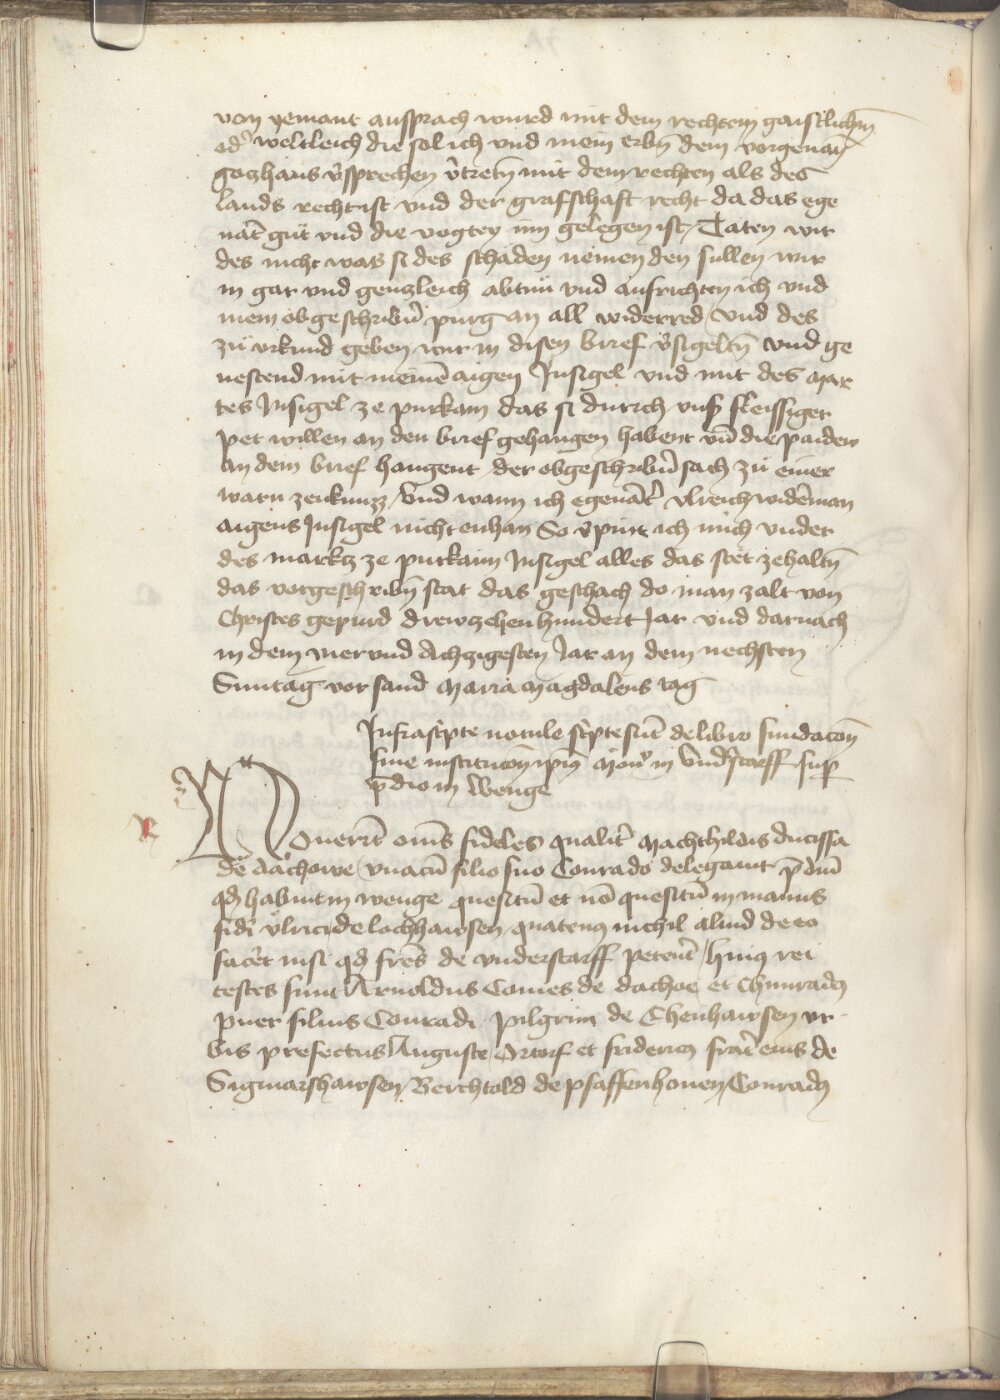 von yemant ansprach wurd mit dem rechtem gaistlichm̄
od̾ weltleich die sol ich vnd mein erbn̄ dem vorgenan̄
gozhaus v̾sprechen v̾tretn̄ mit dem rechten als des
lands recht ist vnd der grafschaft recht da das ege
nāt gut vnd die vogtey inn gelegen ist / Taten wir
des nicht was si des schaden nemen den sullen wir
in gar vnd genczleich abtun vnd aufrichten ich vnd
mein obgeschribn̄ purg an all widerred / vnd des
zu vrkund geben wir in disen brief v̾sigeltn̄ vnd ge
uestend mit meinē aigen Insigel vnd mit des mar
tes Insigel ze purkain das si durich vnß fleissiger
pet willen an den brief gehangen habent vn̄ die paidew
an dem brief hangent / der obgeschribn̄ sach zu einer
warn zeuknuzz / Vnd wann ich egenāt̾ vlreich widēman
aigens Insigel nicht enhan So v̾pint ich mich vnder
des markz ze purkaim Insigel alles das stet zehaltn̄
das vorgeschribn̄ stat das geschach do man zalt von
Christes gepurd drewzehenhundert Jar vnd darnach
in dem viervnd Achzigesten Jar an dem nechsten
Suntag vor sand Maria Magdalens tag
Infrasc̾pte notule sc̾pte sūt de libro fundacōn
siue institucōn ip̄iꝰ Mon̾ in Vnd̾storff sup̄
p̄dio in Wenge
Nouerīt om̄s fideles qualit̾ Machthildis ducissa
de dachowe / vnacū filio suo Conrado delegauit p̄diū
qd̄ habuit in wenge quesitū et nō quesitū in manus
fid̾i vlrici de lochhawsen / quatenꝰ nichil aliud de eo
facēt nisi qd̄ frēs de vnderstarff peterēt / huiꝰ rei
testes sunt Arnoldus Comes de dachoe et Chunradꝰ
puer filius Conradi / Pilgrim de Chenhawsen vr
bis prefectus Auguste / Ortorf et fridericꝰ frāt̾ eius de
Sigmarshawsen / Berchtold de pfaffenhouen / Conradꝰ